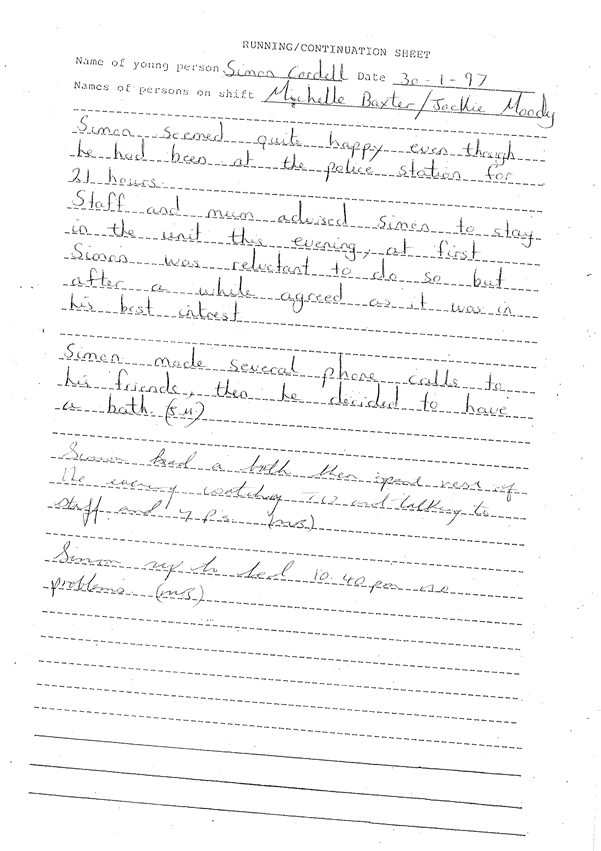 RUNNING/CONTINUATION SHEET
Name of young person Simon Cordell Date 30-1-97
Names of persons on shift Mychelle Baxter/Jackie Moody
Simon seemed quite happy even though
he had been at the police station for
21 hours.
Staff and mum advised Simon to stay
in the unit this evening, at first
Simon was reluctant to do so but
after a while agreed as it was in
his best intrest
Simon made several phone calls to
his friends, then he decided to have
a bath.
Simon had a bath then spend rest of
the evening watching T.V and talking to
staff and y.p.s. (mB)
Simon up to bed 10.40pm no
problems. (mB)